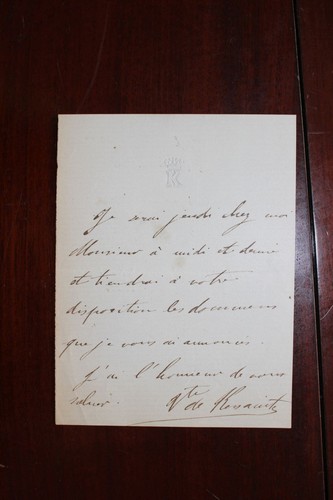 Je serai jeudi chez moi
Monsieur à midi et demi
et tiendrai à votre
disposition les documens
que je vous ai annoncés.
J'ai l'honneur de vous
saluer.
Vte de